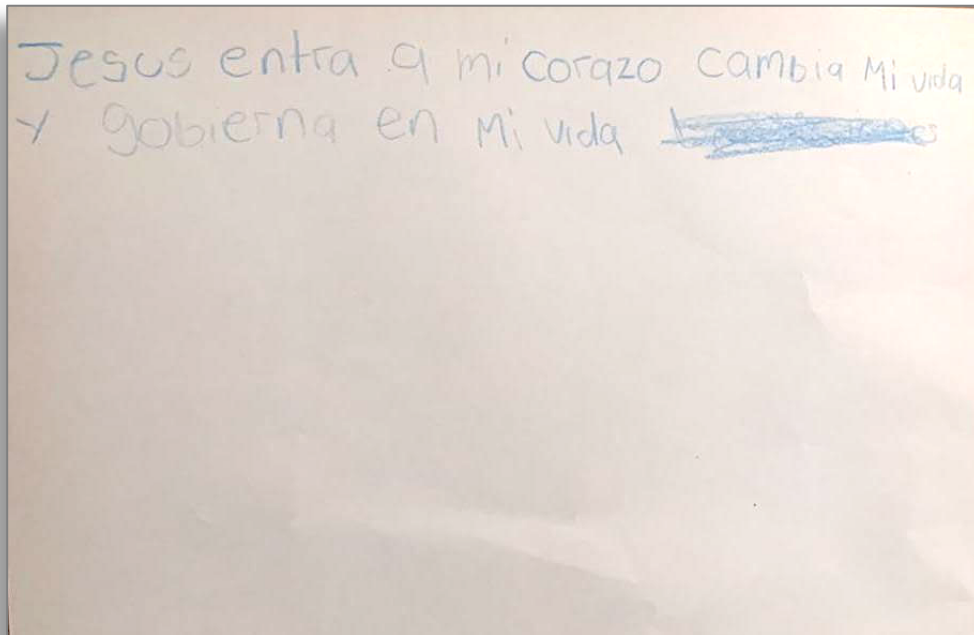 Jesus entra a mi corazo cambia Mi vida
y gobierna en Mi vida